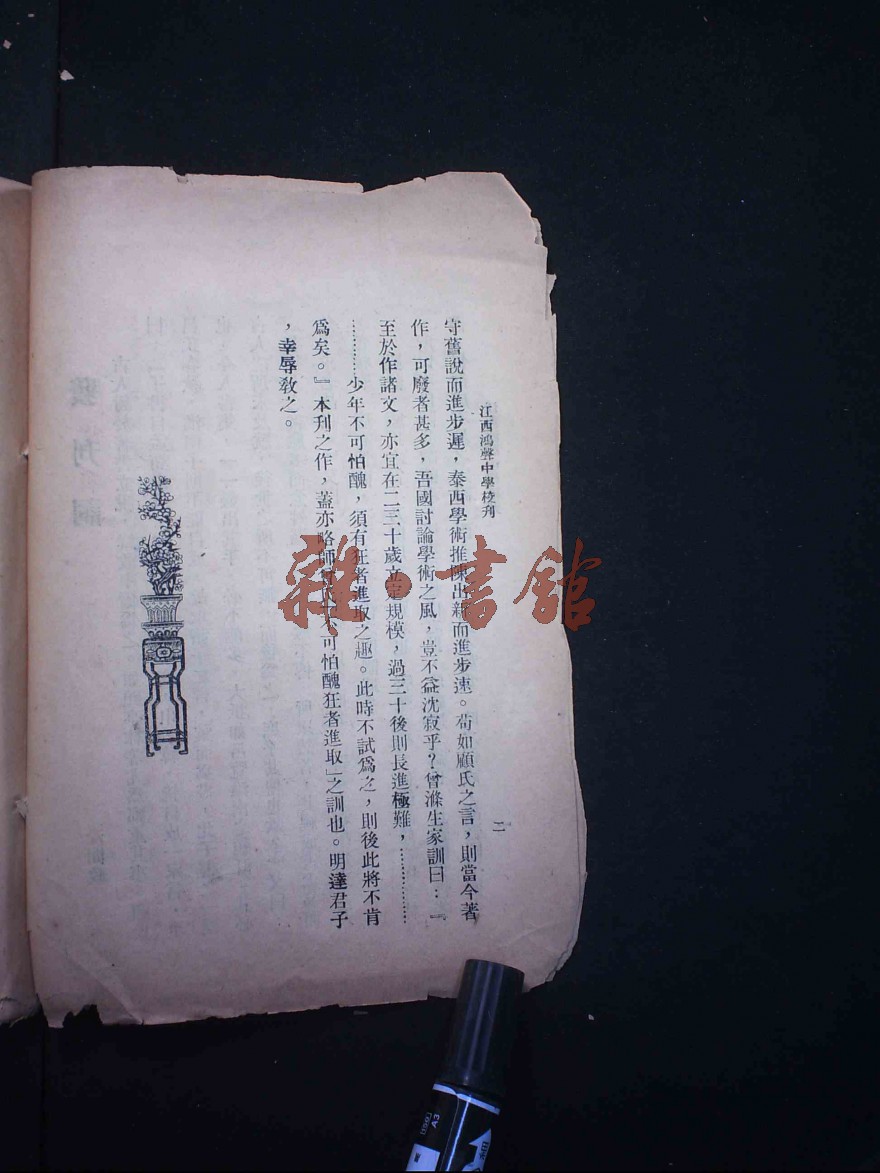 江西鴻聲中學校刊
二
守舊說而進步遲，泰西學術推陳出新而進步速。苟如顧氏之言，則當今著
作，可廢者甚多，吾國討論學術之風，豈不益沈寂乎？曾滌生家訓曰：『
至於作諸文，亦宜在二三十歲立定規模，過三十後則長進極難，…………
…………少年不可怕醜，須有狂者進取之趣。此時不試爲之，則後此將不肯
爲矣。』本刊之作，蓋亦略師曾氏「不可怕醜狂者進取」之訓也。明達君子
，幸辱敎之。
雜·書館
發刊詞